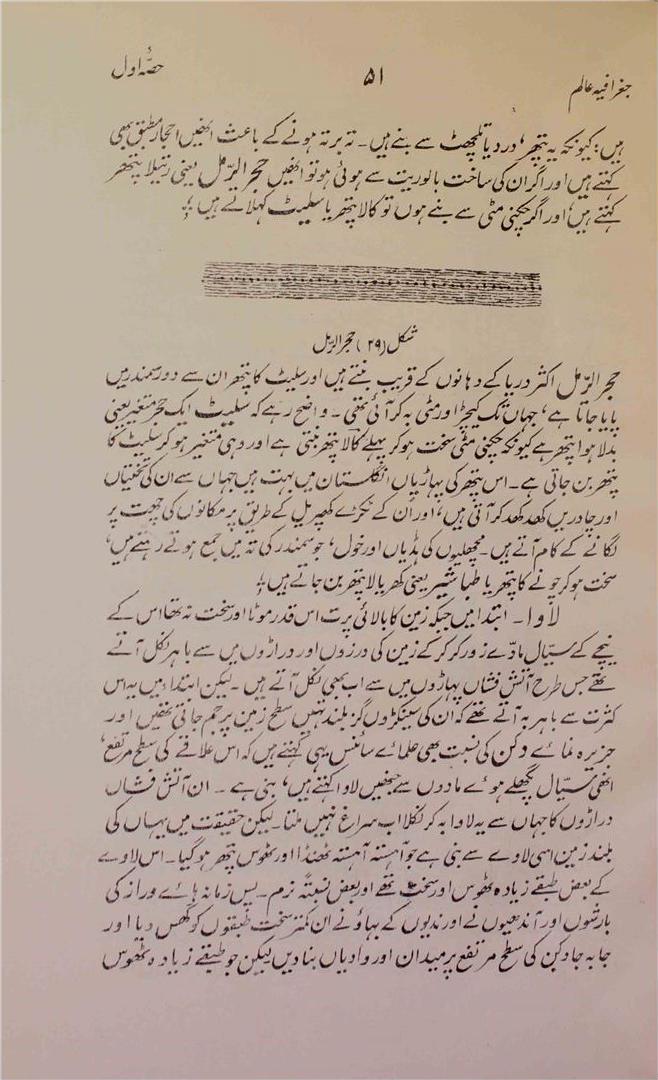 جغرافیہ عالم
۵۱
حصّۂ اول
ہیں؛ کیونکہ یہ پتھر، درد یا تلچھٹ سے بنے ہیں۔ تہ برتہ ہونے کے باعث انھیں احجار مطبق بھی
کہتے ہیں اور اگر ان کی ساخت بالو ریت سے ہوئی ہو تو انھیں حجر الرّمل یعنی رتیلا پتھر
کہتے ہیں، اور اگر چکنی مٹی سے بنے ہوں تو کالا پتھر یا سلیٹ کہلاتے ہیں ؛
شکل (۲۹) حجر الرّمل
حجر الرّمل اکثر دریا کے دہانوں کے قریب بنتے ہیں اور سلیٹ کا پتھر ان سے دور سمندر میں
پایا جاتا ہے، جہاں تک کیچڑ اور مٹی بہ کر آئی تھی۔ واضح رہے کہ سلیٹ ایک حجر متغیر یعنی
بدلا ہوا پتھر ہے کیونکہ چکنی مٹی سخت ہو کر پہلے کالا پتھر بنتی ہے اور وہی متغیر ہو کر سلیٹ کا
پتھر بن جاتی ہے۔ اس پتھر کی پہاڑیاں انگلستان میں بہت ہیں جہاں سے ان کی تختیاں
اور چادریں کھد کھد کر آتی ہیں، اور ان کے ٹکڑے کھپریل کے طریق پر مکانوں کی چھت پر
لگانے کے کام آتے ہیں۔ مچھلیوں کی ہڈیاں اور خول، جو سمندر کی تہ میں جمع ہوتے رہتے ہیں،
سخت ہو کر چونے کا پتھر یا طباشیر یعنی کھریا لا پتھر بن جاتے ہیں ؛
لاوا۔ ابتدا میں جبکہ زمین کا بالائی پرت اس قدر موٹا اور سخت نہ تھا اس کے
نیچے کے سیّال مادّے زور کر کر کے زمین کی درزوں اور دراڑوں میں سے باہر نکل آتے
تھے جس طرح آتش فشاں پہاڑوں میں سے اب بھی نکل آتے ہیں۔ لیکن ابتدا میں یہ اس
کثرت سے باہر بہ آتے تھے کہ ان کی سینکڑوں گز بلند تہیں سطح زمین پر جم جاتی تھیں اور
جزیرہ نمائے دکن کی نسبت بھی علمائے سائنس یہی کہتے ہیں کہ اس علاقے کی سطح مرتفع،
انھی سیّال پگھلے ہوئے مادوں سے جنھیں لاوا کہتے ہیں، بنی ہے۔ ان آتش فشاں
دراڑوں کا جہاں سے یہ لاوا بہ کر نکلا اب سراغ نہیں ملتا۔ لیکن حقیقت میں یہاں کی
بلند زمین اسی لاوے سے بنی ہے جو آہستہ آہستہ ٹھنڈا اور ٹھوس پتھر ہو گیا۔ اس لاوے
کے بعض طبقے زیادہ ٹھوس اور سخت تھے اور بعض نسبتہً نرم۔ پس زمانہ ہائے دراز کی
بارشوں اور آندھیوں نے اور ندیوں کے بہاؤ نے ان کمتر سخت طبقوں کو گھس دیا اور
جا بہ جا دکن کی سطح مرتفع پر میدان اور وادیاں بنا دیں لیکن جو طبقے زیادہ ٹھوس